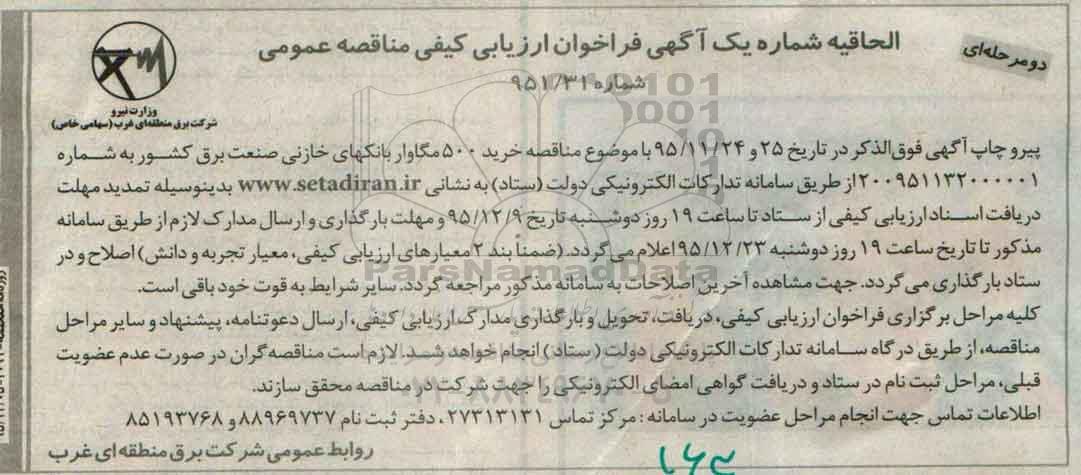 دومرحله‌ای
الحاقیه شماره یک آگهی فراخوان ارزیابی کیفی مناقصه عمومی
شماره ۹۵۱/۳۱
وزارت نیرو
شرکت برق منطقه‌ای غرب (سهامی خاص)
پیرو چاپ آگهی فوق‌الذکر در تاریخ ۲۵ و ۹۵/۱۱/۲۴ با موضوع مناقصه خرید ۵۰۰ مگاوار بانکهای خازنی صنعت برق کشور به شماره
۲۰۰۹۵۱۱۳۲۰۰۰۰۰۱ از طریق سامانه تدارکات الکترونیکی دولت (ستاد) به نشانی www.setadiran.ir بدینوسیله تمدید مهلت
دریافت اسناد ارزیابی کیفی از ستاد تا ساعت ۱۹ روز دوشنبه تاریخ ۹۵/۱۲/۹ و مهلت بارگذاری و ارسال مدارک لازم از طریق سامانه
مذکور تا تاریخ ساعت ۱۹ روز دوشنبه ۹۵/۱۲/۲۳ اعلام می‌گردد. (ضمناً بند ۲ معیارهای ارزیابی کیفی، معیار تجربه و دانش) اصلاح و در
ستاد بارگذاری می گردد. جهت مشاهده آخرین اصلاحات به سامانه مذکور مراجعه گردد. سایر شرایط به قوت خود باقی است.
کلیه مراحل برگزاری فراخوان ارزیابی کیفی، دریافت، تحویل و بارگذاری مدارک ارزیابی کیفی، ارسال دعوتنامه، پیشنهاد و سایر مراحل
مناقصه، از طریق درگاه سامانه تدارکات الکترونیکی دولت (ستاد) انجام خواهد شد. لازم است مناقصه‌گران در صورت عدم عضویت
قبلی، مراحل ثبت نام در ستاد و دریافت گواهی امضای الکترونیکی را جهت شرکت در مناقصه محقق سازند.
اطلاعات تماس جهت انجام مراحل عضویت در سامانه : مرکز تماس ۲۷۳۱۳۱۳۱، دفتر ثبت نام ۸۸۹۶۹۷۳۷ و ۸۵۱۹۳۷۶۸
روابط عمومی شرکت برق منطقه ای غرب
ParsNamadData